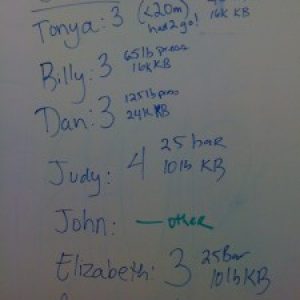 Tonya: 3 (<20m) had 2 go! 16K KB
Billy: 3 65lb press 16K KB
Dan: 3 125lb press 24K KB
Judy: 4 25 bar 10lb KB
John: — other
Elizabeth: 3 25 Bar 10lb KB